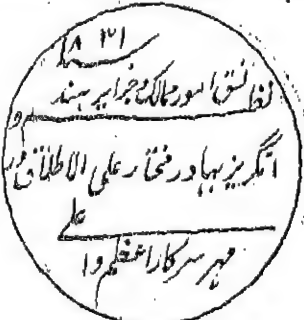 ۱۸۳۱
نظم نسق امور ممالک جزایر ہند و
انگریز بہادر مختار علی الاطلاق در
علی
مہر سرکار اعظم و ا